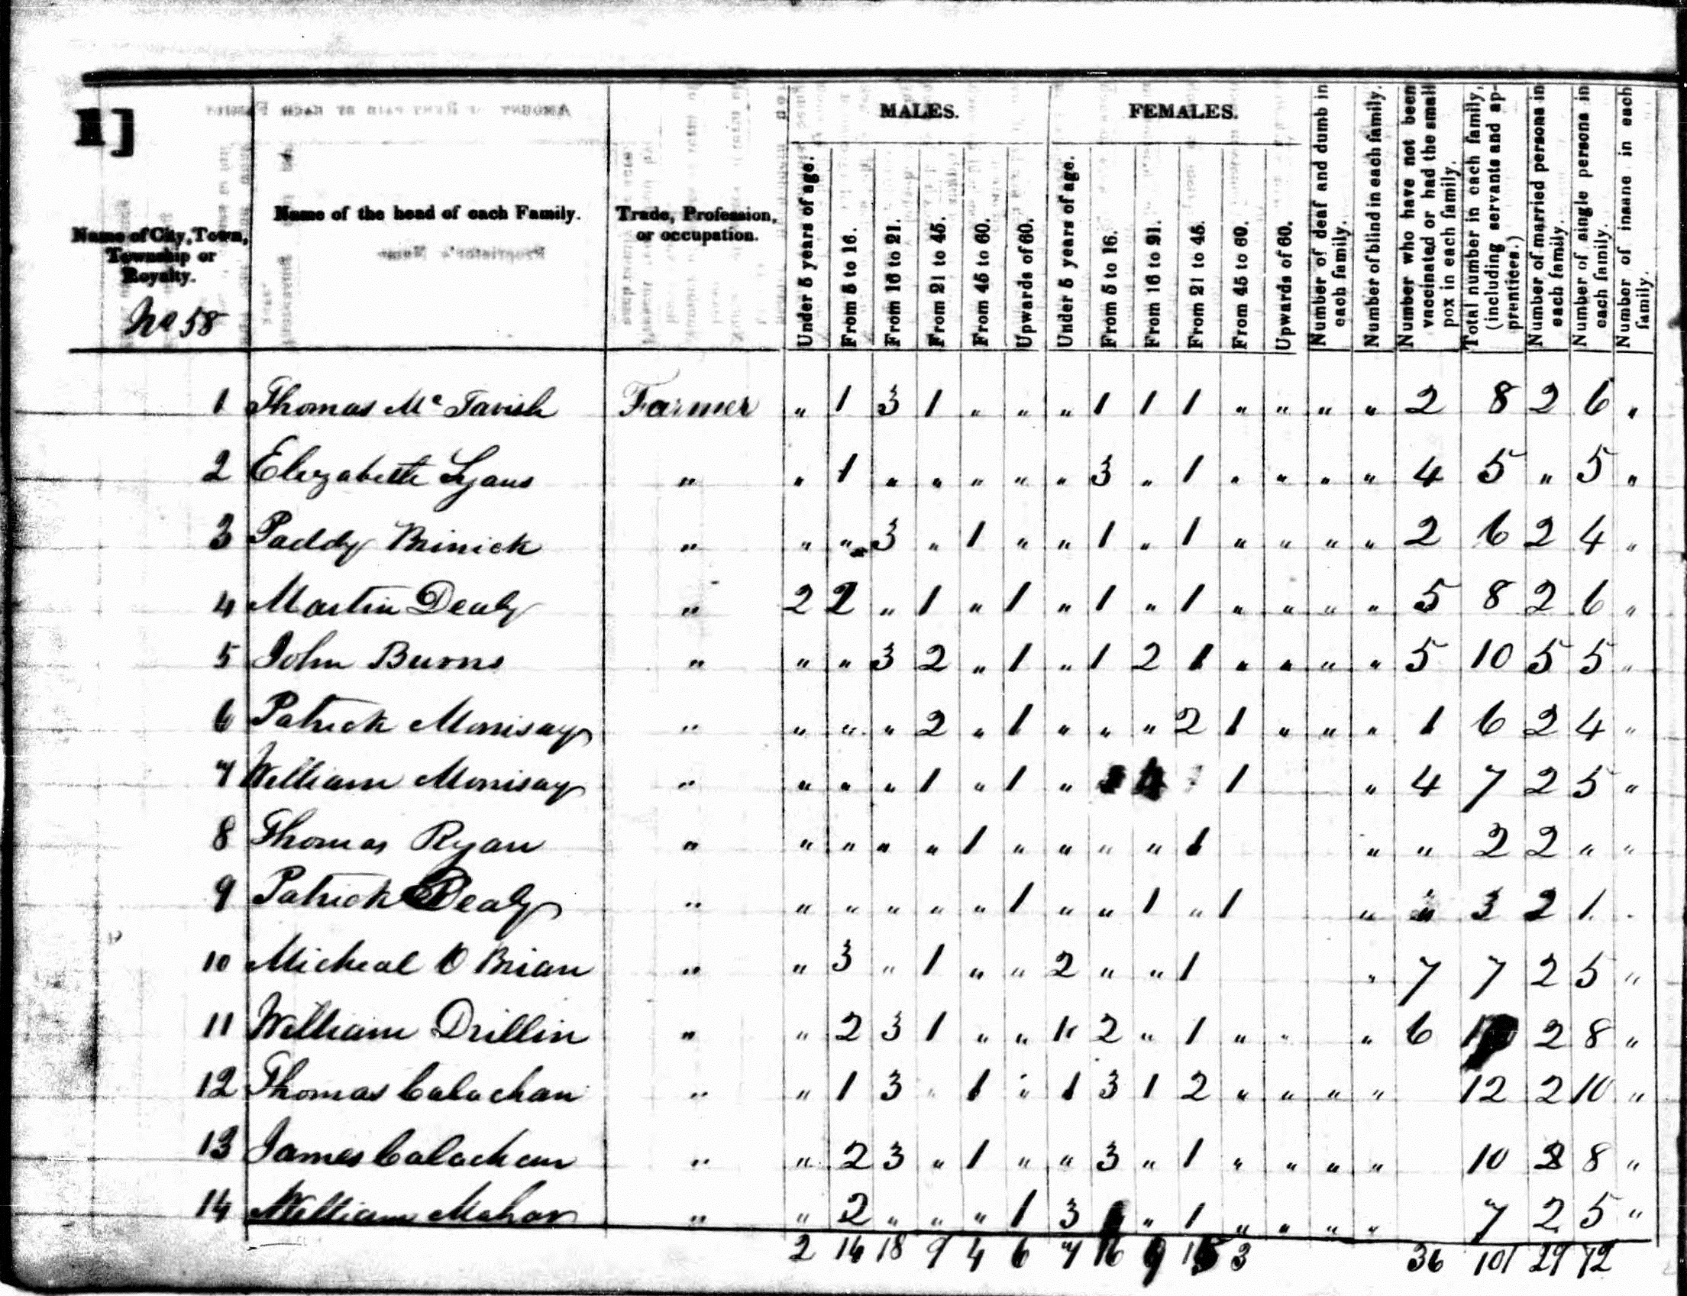 1]
MALES. FEMALES.
Name of City, Town, Township or Royalty.
Name of the head of each Family.
Trade, Profession, or occupation.
Under 5 years of age.
From 5 to 16.
From 16 to 21.
From 21 to 45.
From 45 to 60.
Upwards of 60.
Under 5 years of age.
From 5 to 16.
From 16 to 21.
From 21 to 45.
From 45 to 60.
Upwards of 60.
Number of deaf and dumb in each family.
Number of blind in each family.
Number who have not been vaccinated or had the small pox in each family.
Total number in each family, (including servants and apprentices.)
Number of married persons in each family.
Number of single persons in each family.
Number of insane in each family.
No 58
1 Thomas Mc Tavish Farmer " 1 3 1 " " " 1 1 1 " " " " 2 8 2 6 "
2 Elizabeth Lyans " " 1 " " " " " 3 " 1 " " " " 4 5 " 5 "
3 Paddy Binick " " " 3 " 1 " " 1 " 1 " " " " 2 6 2 4 "
4 Martin Dealy " 2 2 " 1 " 1 " 1 " 1 " " " " 5 8 2 6 "
5 John Burns " " " 3 2 " 1 " 1 2 1 " " " " 5 10 5 5 "
6 Patrick Morrisay " " " " 2 " 1 " " " 2 1 " " " 1 6 2 4 "
7 William Morrisay " " " " 1 " 1 " 4 1 " 4 7 2 5 "
8 Thomas Ryan " " " " " 1 " " " " 1 " " 2 2 " "
9 Patrick Dealy " " " " " " 1 " " 1 " 1 " " 3 2 1 "
10 Micheal O Brian " " 3 " 1 " " 2 " " 1 " 7 7 2 5 "
11 William Drillin " " 2 3 1 " " 1 2 " 1 " " " 6 2 8 "
12 Thomas Calachan " " 1 3 " 1 " 1 3 1 2 " " " " 12 2 10 "
13 James Calachan " " 2 3 " 1 " " 3 " 1 " " " " 10 2 8 "
14 William Mahar " " 2 " " " 1 3 " 1 " " " " 7 2 5 "
2 14 18 9 4 6 7 16 9 15 3 36 101 29 72